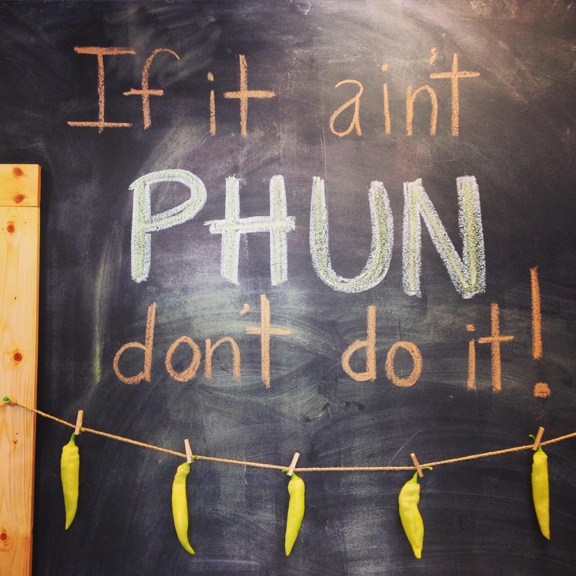 If it ain't
PHUN
don't do it!